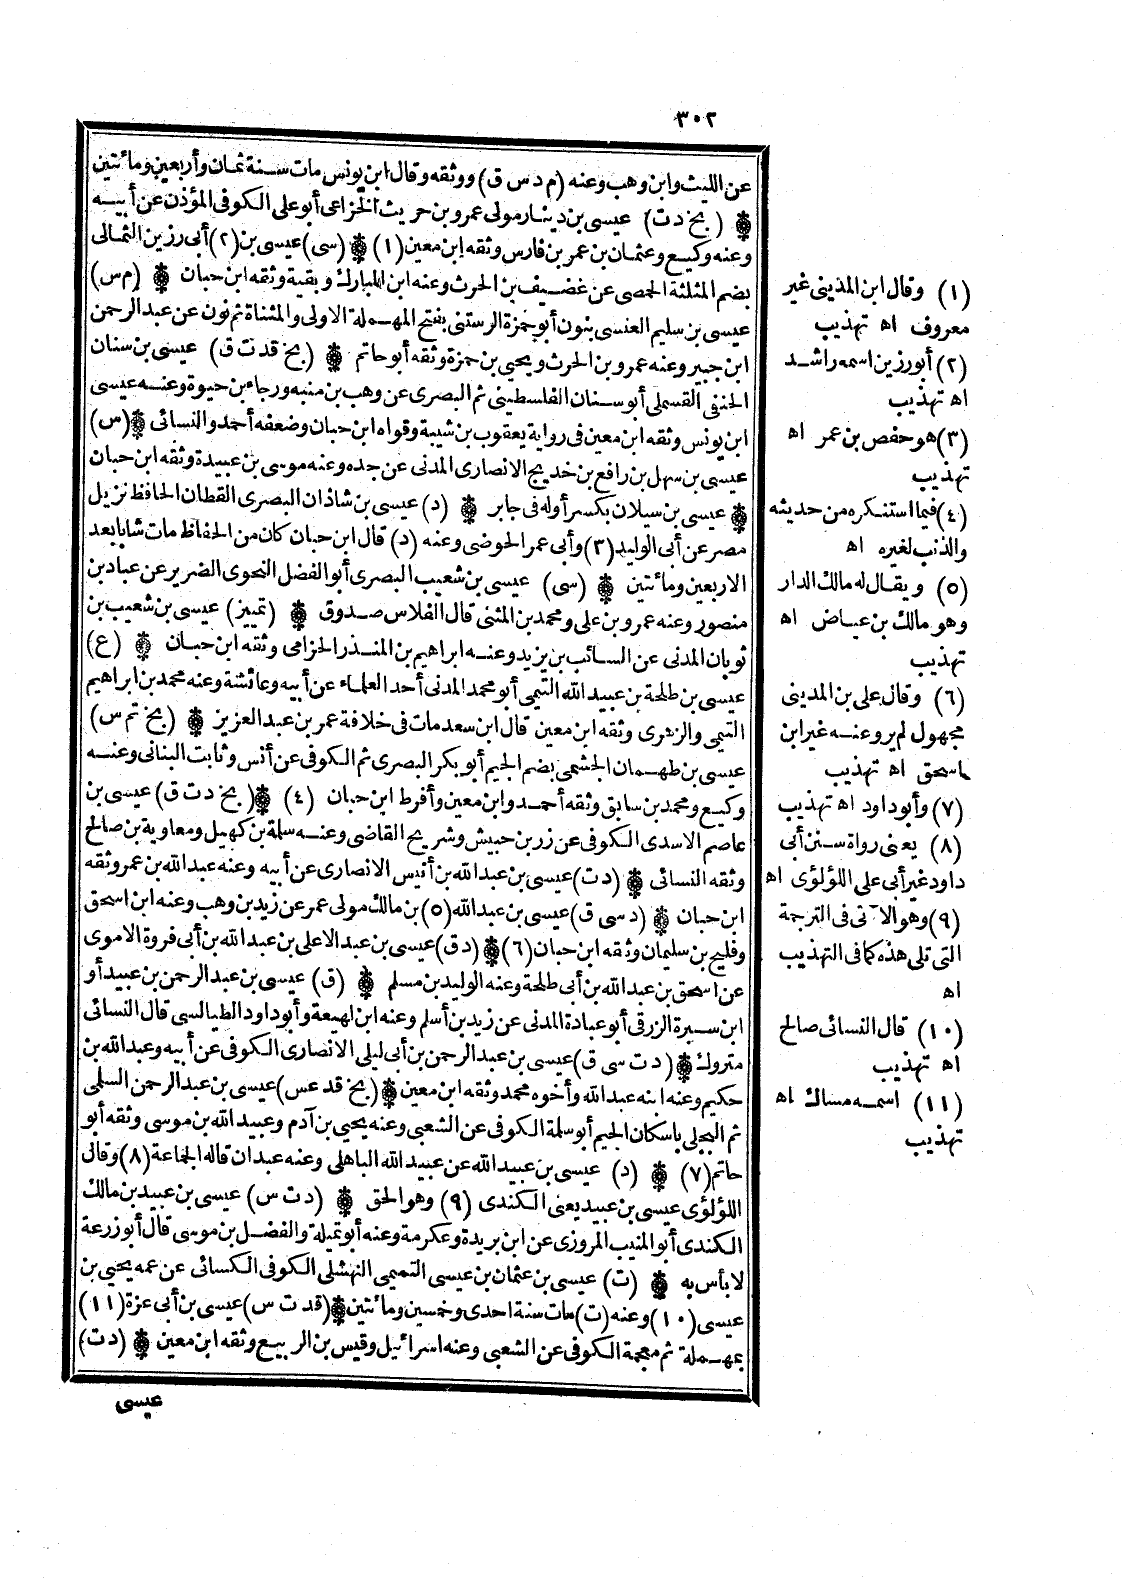 ٣٠٢
عن الليث وابن وهب وعنه (م د س ق) ووثقه وقال ابن يونس مات سنة ثمان وأربعين ومائتين
❁ (بخ د ت) عيسى بن دينار مولى عمرو بن حريث الخزاعى أبو على الكوفى المؤذن عن أبيه
وعنه وكيع وعثمان بن عمر بن فارس وثقه ابن معين (١) ❁ (سى) عيسى بن (٢) أبى رزين الثمالى
بضم المثلثة الحمصى عن غضيف بن الحرث وعنه ابن المبارك وبقية وثقه ابن حبان ❁ (م س)
عيسى بن سليم العنسى بنون أبو حمزة الرستنى بفتح المهملة الاولى والمثناة ثم نون عن عبد الرحمن
ابن جبير وعنه عمرو بن الحرث ويحيى بن حمزة وثقه أبو حاتم ❁ (بخ قد ت ق) عيسى بن سنان
الحنفى القسملى أبو سنان الفلسطينى ثم البصرى عن وهب بن منبه ورجاء بن حيوة وعنه عيسى
ابن يونس وثقه ابن معين فى رواية يعقوب بن شيبة وقواه ابن حبان وضعفه أحمد والنسائى ❁ (س)
عيسى بن سهل بن رافع بن خديج الانصارى المدنى عن جده وعنه موسى بن عبيدة وثقه ابن حبان
❁ عيسى بن سيلان بكسر أوله فى جابر ❁ (د) عيسى بن شاذان البصرى القطان الحافظ نزيل
مصر عن أبى الوليد (٣) وأبى عمر الحوضى وعنه (د) قال ابن حبان كان من الحفاظ مات شابا بعد
الاربعين ومائتين ❁ (سى) عيسى بن شعيب البصرى أبو الفضل النحوى الضرير عن عباد بن
منصور وعنه عمرو بن على ومحمد بن المثنى قال الفلاس صدوق ❁ (تمييز) عيسى بن شعيب بن
ثوبان المدنى عن السائب بن يزيد وعنه ابراهيم بن المنذر الحزامى وثقه ابن حبان ❁ (ع)
عيسى بن طلحة بن عبيد الله التيمى أبو محمد المدنى أحد العلماء عن أبيه وعائشة وعنه محمد بن ابراهيم
التيمى والزهرى وثقه ابن معين قال ابن سعد مات فى خلافة عمر بن عبد العزيز ❁ (بخ تم س)
عيسى بن طهمان الجشمى بضم الجيم أبو بكر البصرى ثم الكوفى عن أنس وثابت البنانى وعنه
وكيع ومحمد بن سابق وثقه أحمد وابن معين وأفرط ابن حبان (٤) ❁ (بخ د ت ق) عيسى بن
عاصم الاسدى الكوفى عن زر بن حبيش وشريح القاضى وعنه سلمة بن كهيل ومعاوية بن صالح
وثقه النسائى ❁ (د ت) عيسى بن عبد الله بن أنيس الانصارى عن أبيه وعنه عبد الله بن عمر وثقه
ابن حبان ❁ (د سى ق) عيسى بن عبد الله (٥) بن مالك مولى عمر عن زيد بن وهب وعنه ابن اسحق
وفليح بن سليمان وثقه ابن حبان (٦) ❁ (د ق) عيسى بن عبد الاعلى بن عبد الله بن أبى فروة الاموى
عن اسحق بن عبد الله بن أبى طلحة وعنه الوليد بن مسلم ❁ (ق) عيسى بن عبد الرحمن بن عبيد أو
ابن سبرة الزرقى أبو عبادة المدنى عن زيد بن أسلم وعنه ابن لهيعة وأبو داود الطيالسى قال النسائى
متروك ❁ (د ت سى ق) عيسى بن عبد الرحمن بن أبى ليلى الانصارى الكوفى عن أبيه وعبد الله بن
حكيم وعنه ابنه عبد الله وأخوه محمد وثقه ابن معين ❁ (بخ قد عس) عيسى بن عبد الرحمن السلمى
ثم البجلى باسكان الجيم أبو سلمة الكوفى عن الشعبى وعنه يحيى بن آدم وعبيد الله بن موسى وثقه أبو
حاتم (٧) ❁ (د) عيسى بن عبيد الله عن عبيد الله الباهلى وعنه عبدان قاله الجماعة (٨) وقال
اللؤلؤى عيسى بن عبيد يعنى الكندى (٩) وهو الحق ❁ (د ت س) عيسى بن عبيد بن مالك
الكندى أبو المنيب المروزى عن ابن بريدة وعكرمة وعنه أبو تميلة والفضل بن موسى قال أبو زرعة
لا بأس به ❁ (ت) عيسى بن عثمان بن عيسى التميمى النهشلى الكوفى الكسائى عن عمه يحيى بن
عيسى (١٠) وعنه (ت) مات سنة احدى وخمسين ومائتين ❁ (قد ت س) عيسى بن أبى عزة (١١)
بمهملة ثم معجمة الكوفى عن الشعبى وعنه اسرائيل وقيس بن الربيع وثقه ابن معين ❁ (د ت)
عيسى
(١) وقال ابن المدينى غير
معروف اه تهذيب
(٢) أبو رزين اسمه راشد
اه تهذيب
(٣) هو حفص بن عمر اه
تهذيب
(٤) فيما استنكره من حديثه
والذنب لغيره اه
(٥) ويقال له مالك الدار
وهو مالك بن عياض اه
تهذيب
(٦) وقال على بن المدينى
مجهول لم يرو عنه غير ابن
اسحق اه تهذيب
(٧) وأبو داود اه تهذيب
(٨) يعنى رواة سنن أبى
داود غير أبى على اللؤلؤى اه
(٩) وهو الآتى فى الترجمة
التى تلى هذه كما فى التهذيب
اه
(١٠) قال النسائى صالح
اه تهذيب
(١١) اسمه مساك اه
تهذيب